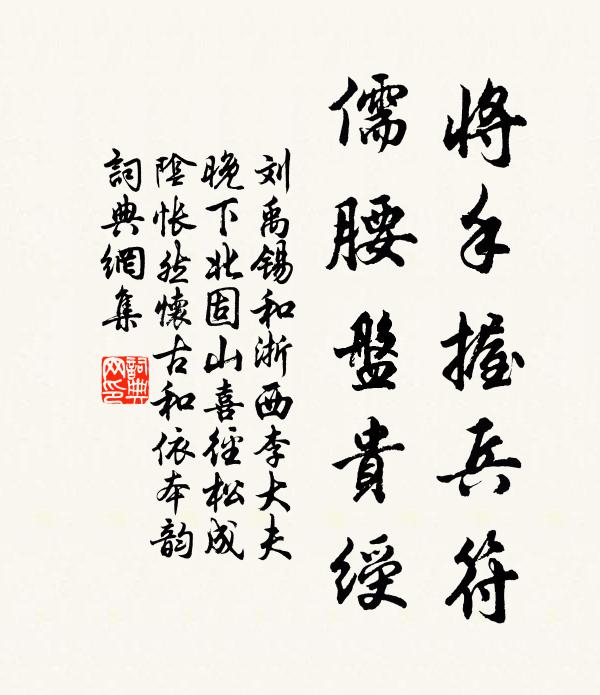 將手握兵符
儒腰盤貴綬
刘禹锡和浙西李大夫
晚下北固山喜徑松成
陰悵然懷古和依本韵
詞典網集
詞典
网印